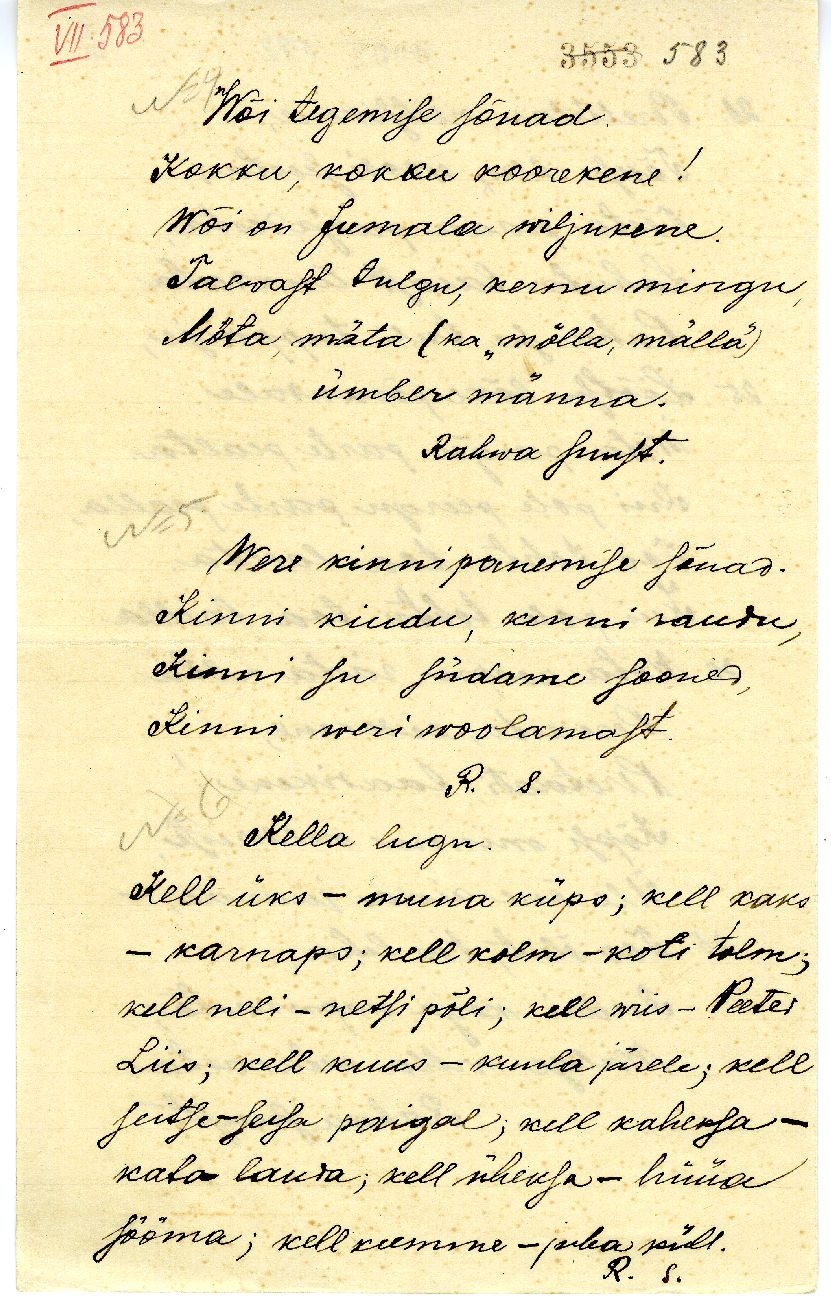 VII. 583
3553 583
№ 4
Wõi tegemise sõnad.
Kokku, kokku koorekene!
Wõi on Jumala wiljukene.
Taewast tulgu, kernu mingu,
Mõta, mäta (ka „mõlla, mällä)
ümber männa.
Rahwa suust.
№ 5
Were kinnipanemise sõnad.
Kinni kiudu, kinni raudu,
Kinni su südame sooned,
Kinni weri woolamast.
R. s.
№ 6
Kella lugu.
Kell üks – muna küps; kell kaks
– karnaps; kell kolm – koti tolm;
kell neli – netsi põli; kell wiis – Peeter
Liis; kell kuus – kuula järele; kell
seitse – seisa paigal; kell kaheksa –
kata lauda; kell üheksa – hüüa
sööma; kell kümme – juba küll.
R. s.